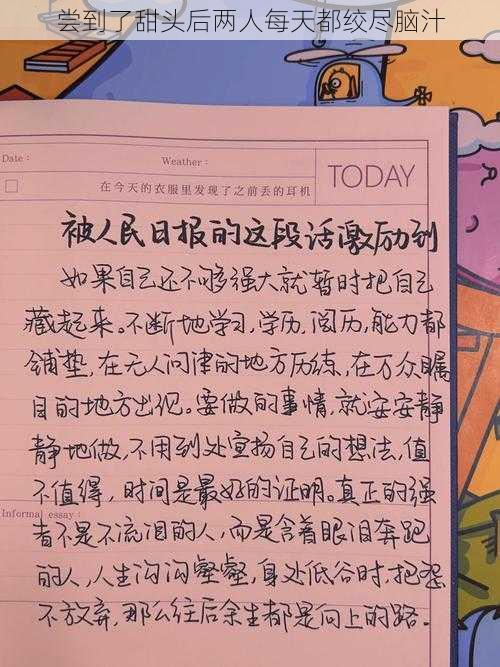 尝到了甜头后两人每天都绞尽脑汁
Date：
Weather：
TODAY
在今天的衣服里发现了之前丢的耳机
被人民日报的这段话激励到
如果自己还不够强大就暂时把自己
藏起来。不断地学习,学历,阅历,能力都
铺垫,在无人问津的地方历练,在万众瞩
目的地方出现。要做的事情,就安安静
静地做,不用到处宣扬自己的想法,值
不值得,时间是最好的证明。真正的强
Informal essay：
者不是不流泪的人,而是含着眼泪奔跑
的人,人生沟沟壑壑,身处低谷时,把怨
不放弃,那么往后余生都是向上的路。